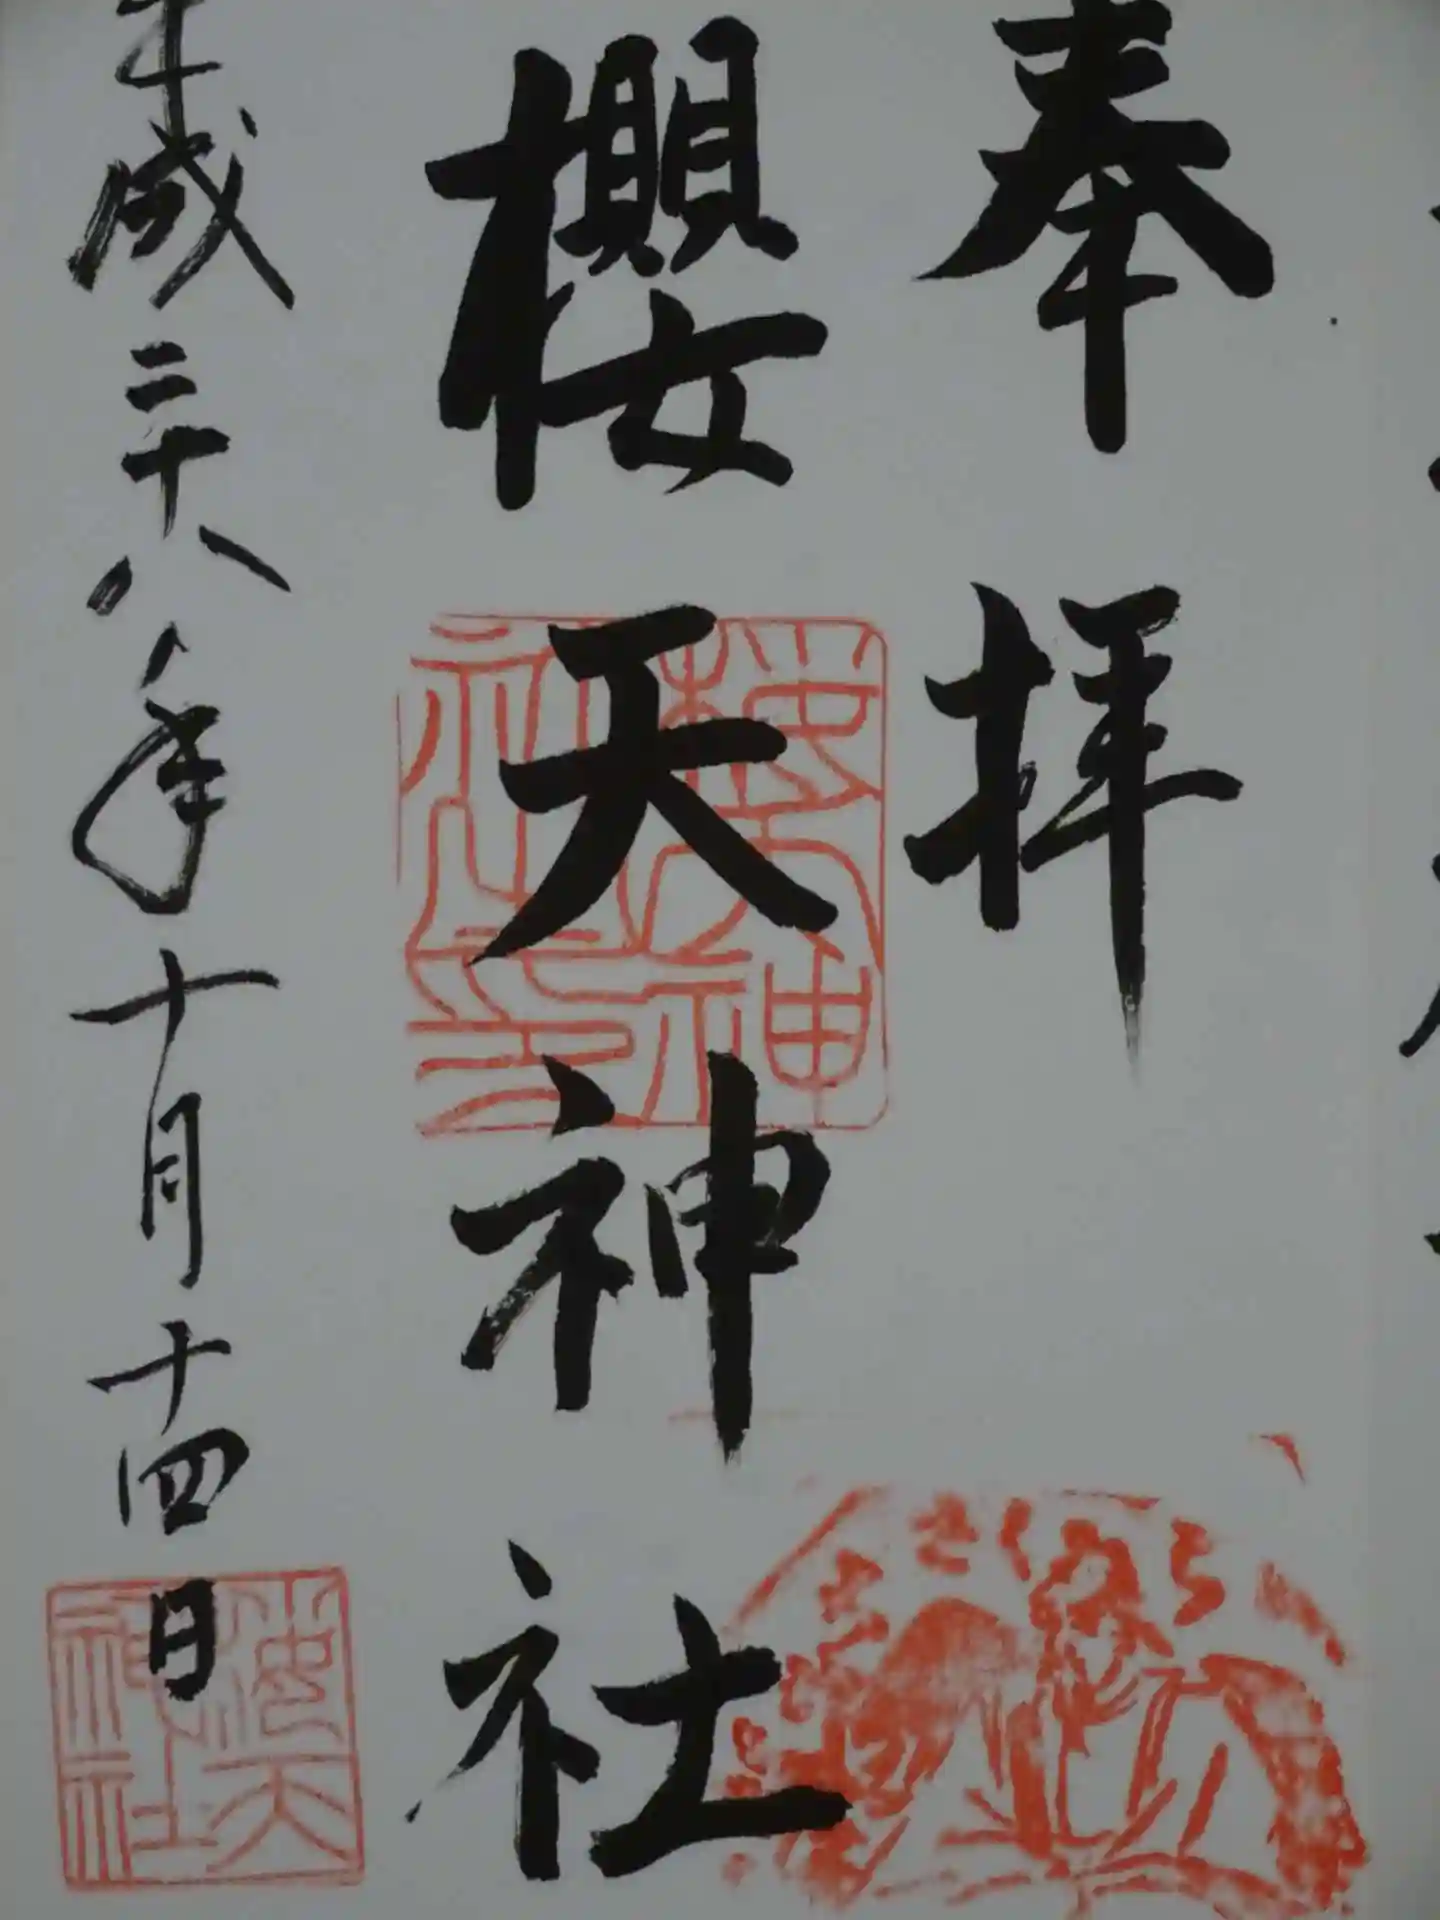 奉拝
櫻天神社
平成二十八年十月十四日
櫻天神社印
櫻天神社